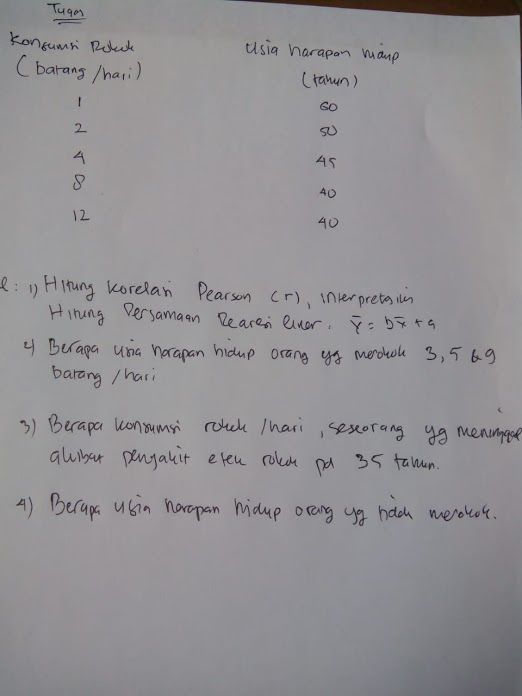 Tugas
Konsumsi Rokok Usia harapan hidup
(batang /hari) (tahun)
1 60
2 50
4 45
8 40
12 40
1) Hitung Korelasi Pearson (r), interpretasikan
Hitung Persamaan Regresi linier. ȳ = bx̄ + a
2) Berapa usia harapan hidup orang yg merokok 3, 5 & 9
batang /hari
3) Berapa konsumsi rokok /hari, seseorang yg meninggal
akibat penyakit efek rokok pd 35 tahun.
4) Berapa usia harapan hidup orang yg tidak merokok.